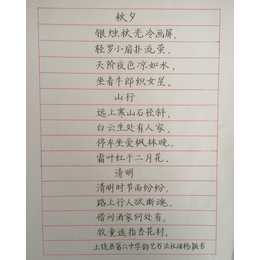 秋夕
银烛秋光冷画屏，
轻罗小扇扑流萤。
天阶夜色凉如水，
坐看牛郎织女星。
山行
远上寒山石径斜，
白云生处有人家。
停车坐爱枫林晚，
霜叶红于二月花。
清明
清明时节雨纷纷，
路上行人欲断魂。
借问酒家何处有，
牧童遥指杏花村。
上饶县第六中学翰艺书法社